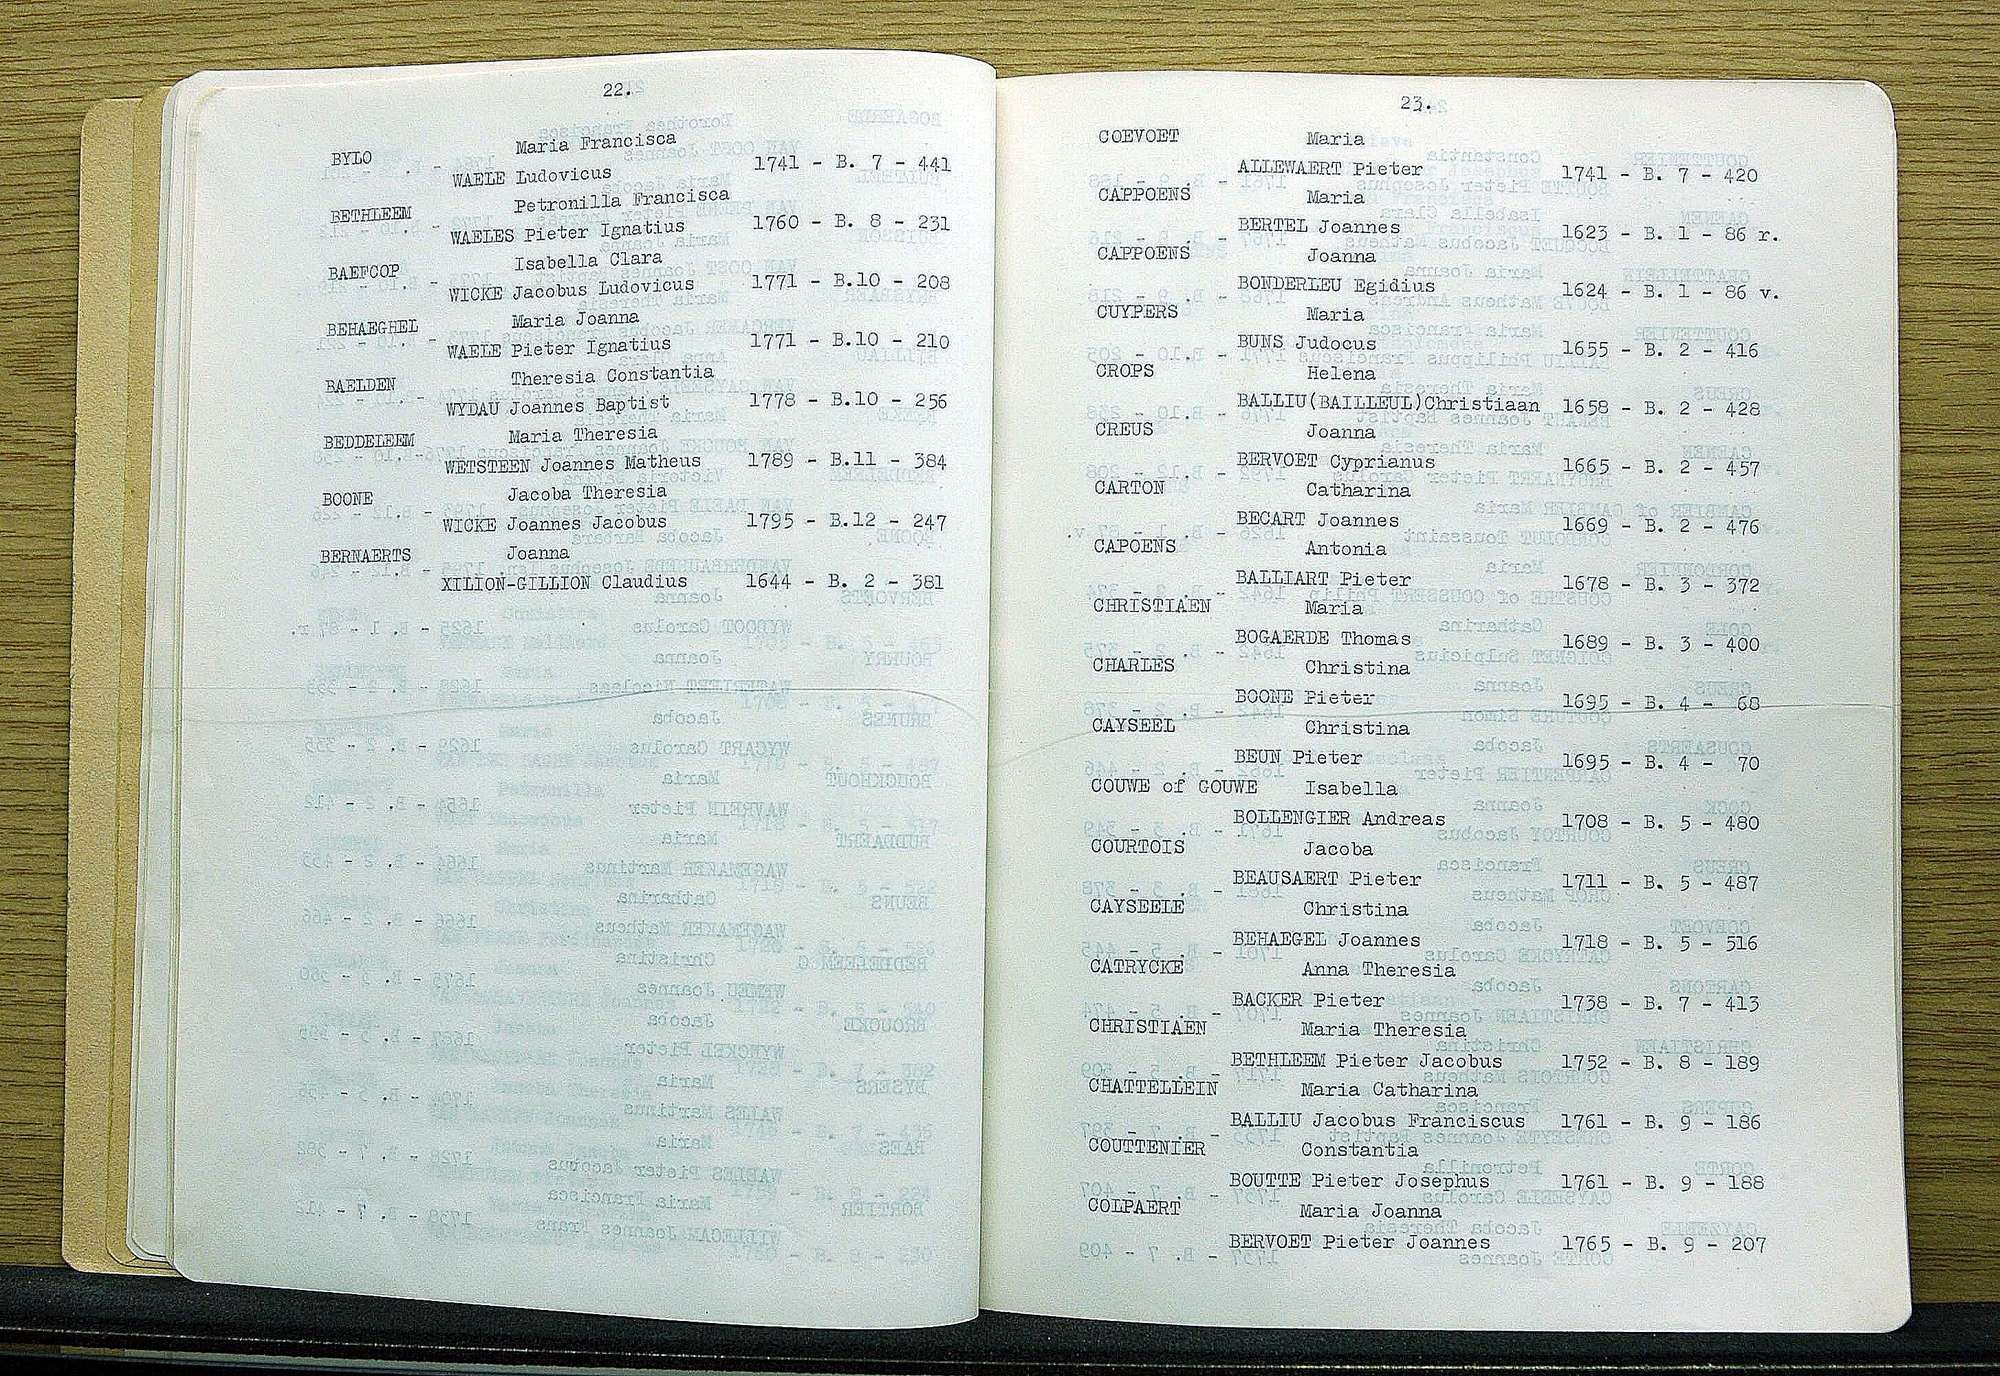 22.
BYLO Maria Francisca
- WAELE Ludovicus 1741 - B. 7 - 441
BETHLEEM Petronilla Francisca
- WAELES Pieter Ignatius 1760 - B. 8 - 231
BAEFCOP Isabella Clara
- WICKE Jacobus Ludovicus 1771 - B.10 - 208
BEHAEGHEL Maria Joanna
- WAELE Pieter Ignatius 1771 - B.10 - 210
BAELDEN Theresia Constantia
WYDAU Joannes Baptist 1778 - B.10 - 256
BEDDELEEM Maria Theresia
WETSTEEN Joannes Matheus 1789 - B.11 - 384
BOONE Jacoba Theresia
WICKE Joannes Jacobus 1795 - B.12 - 247
BERNAERTS Joanna
XILION-GILLION Claudius 1644 - B. 2 - 381
23.
COEVOET Maria
ALLEWAERT Pieter 1741 - B. 7 - 420
CAPPOENS Maria
BERTEL Joannes 1623 - B. 1 - 86 r.
CAPPOENS Joanna
BONDERLEU Egidius 1624 - B. 1 - 86 v.
CUYPERS Maria
BUNS Judocus 1655 - B. 2 - 416
CROPS Helena
BALLIU(BAILLEUL)Christiaan 1658 - B. 2 - 428
CREUS Joanna
BERVOET Cyprianus 1665 - B. 2 - 457
CARTON Catharina
BECART Joannes 1669 - B. 2 - 476
CAPOENS Antonia
BALLIART Pieter 1678 - B. 3 - 372
CHRISTIAEN Maria
BOGAERDE Thomas 1689 - B. 3 - 400
CHARLES Christina
BOONE Pieter 1695 - B. 4 - 68
CAYSEEL Christina
BEUN Pieter 1695 - B. 4 - 70
COUWE of GOUWE Isabella
BOLLENGIER Andreas 1708 - B. 5 - 480
COURTOIS Jacoba
BEAUSAERT Pieter 1711 - B. 5 - 487
CAYSEELE Christina
BEHAEGEL Joannes 1718 - B. 5 - 516
CATRYCKE Anna Theresia
BACKER Pieter 1738 - B. 7 - 413
CHRISTIAEN Maria Theresia
BETHLEEM Pieter Jacobus 1752 - B. 8 - 189
CHATTELLEIN Maria Catharina
BALLIU Jacobus Franciscus 1761 - B. 9 - 186
COUTTENIER Constantia
BOUTTE Pieter Josephus 1761 - B. 9 - 188
COLPAERT Maria Joanna
BERVOET Pieter Joannes 1765 - B. 9 - 207